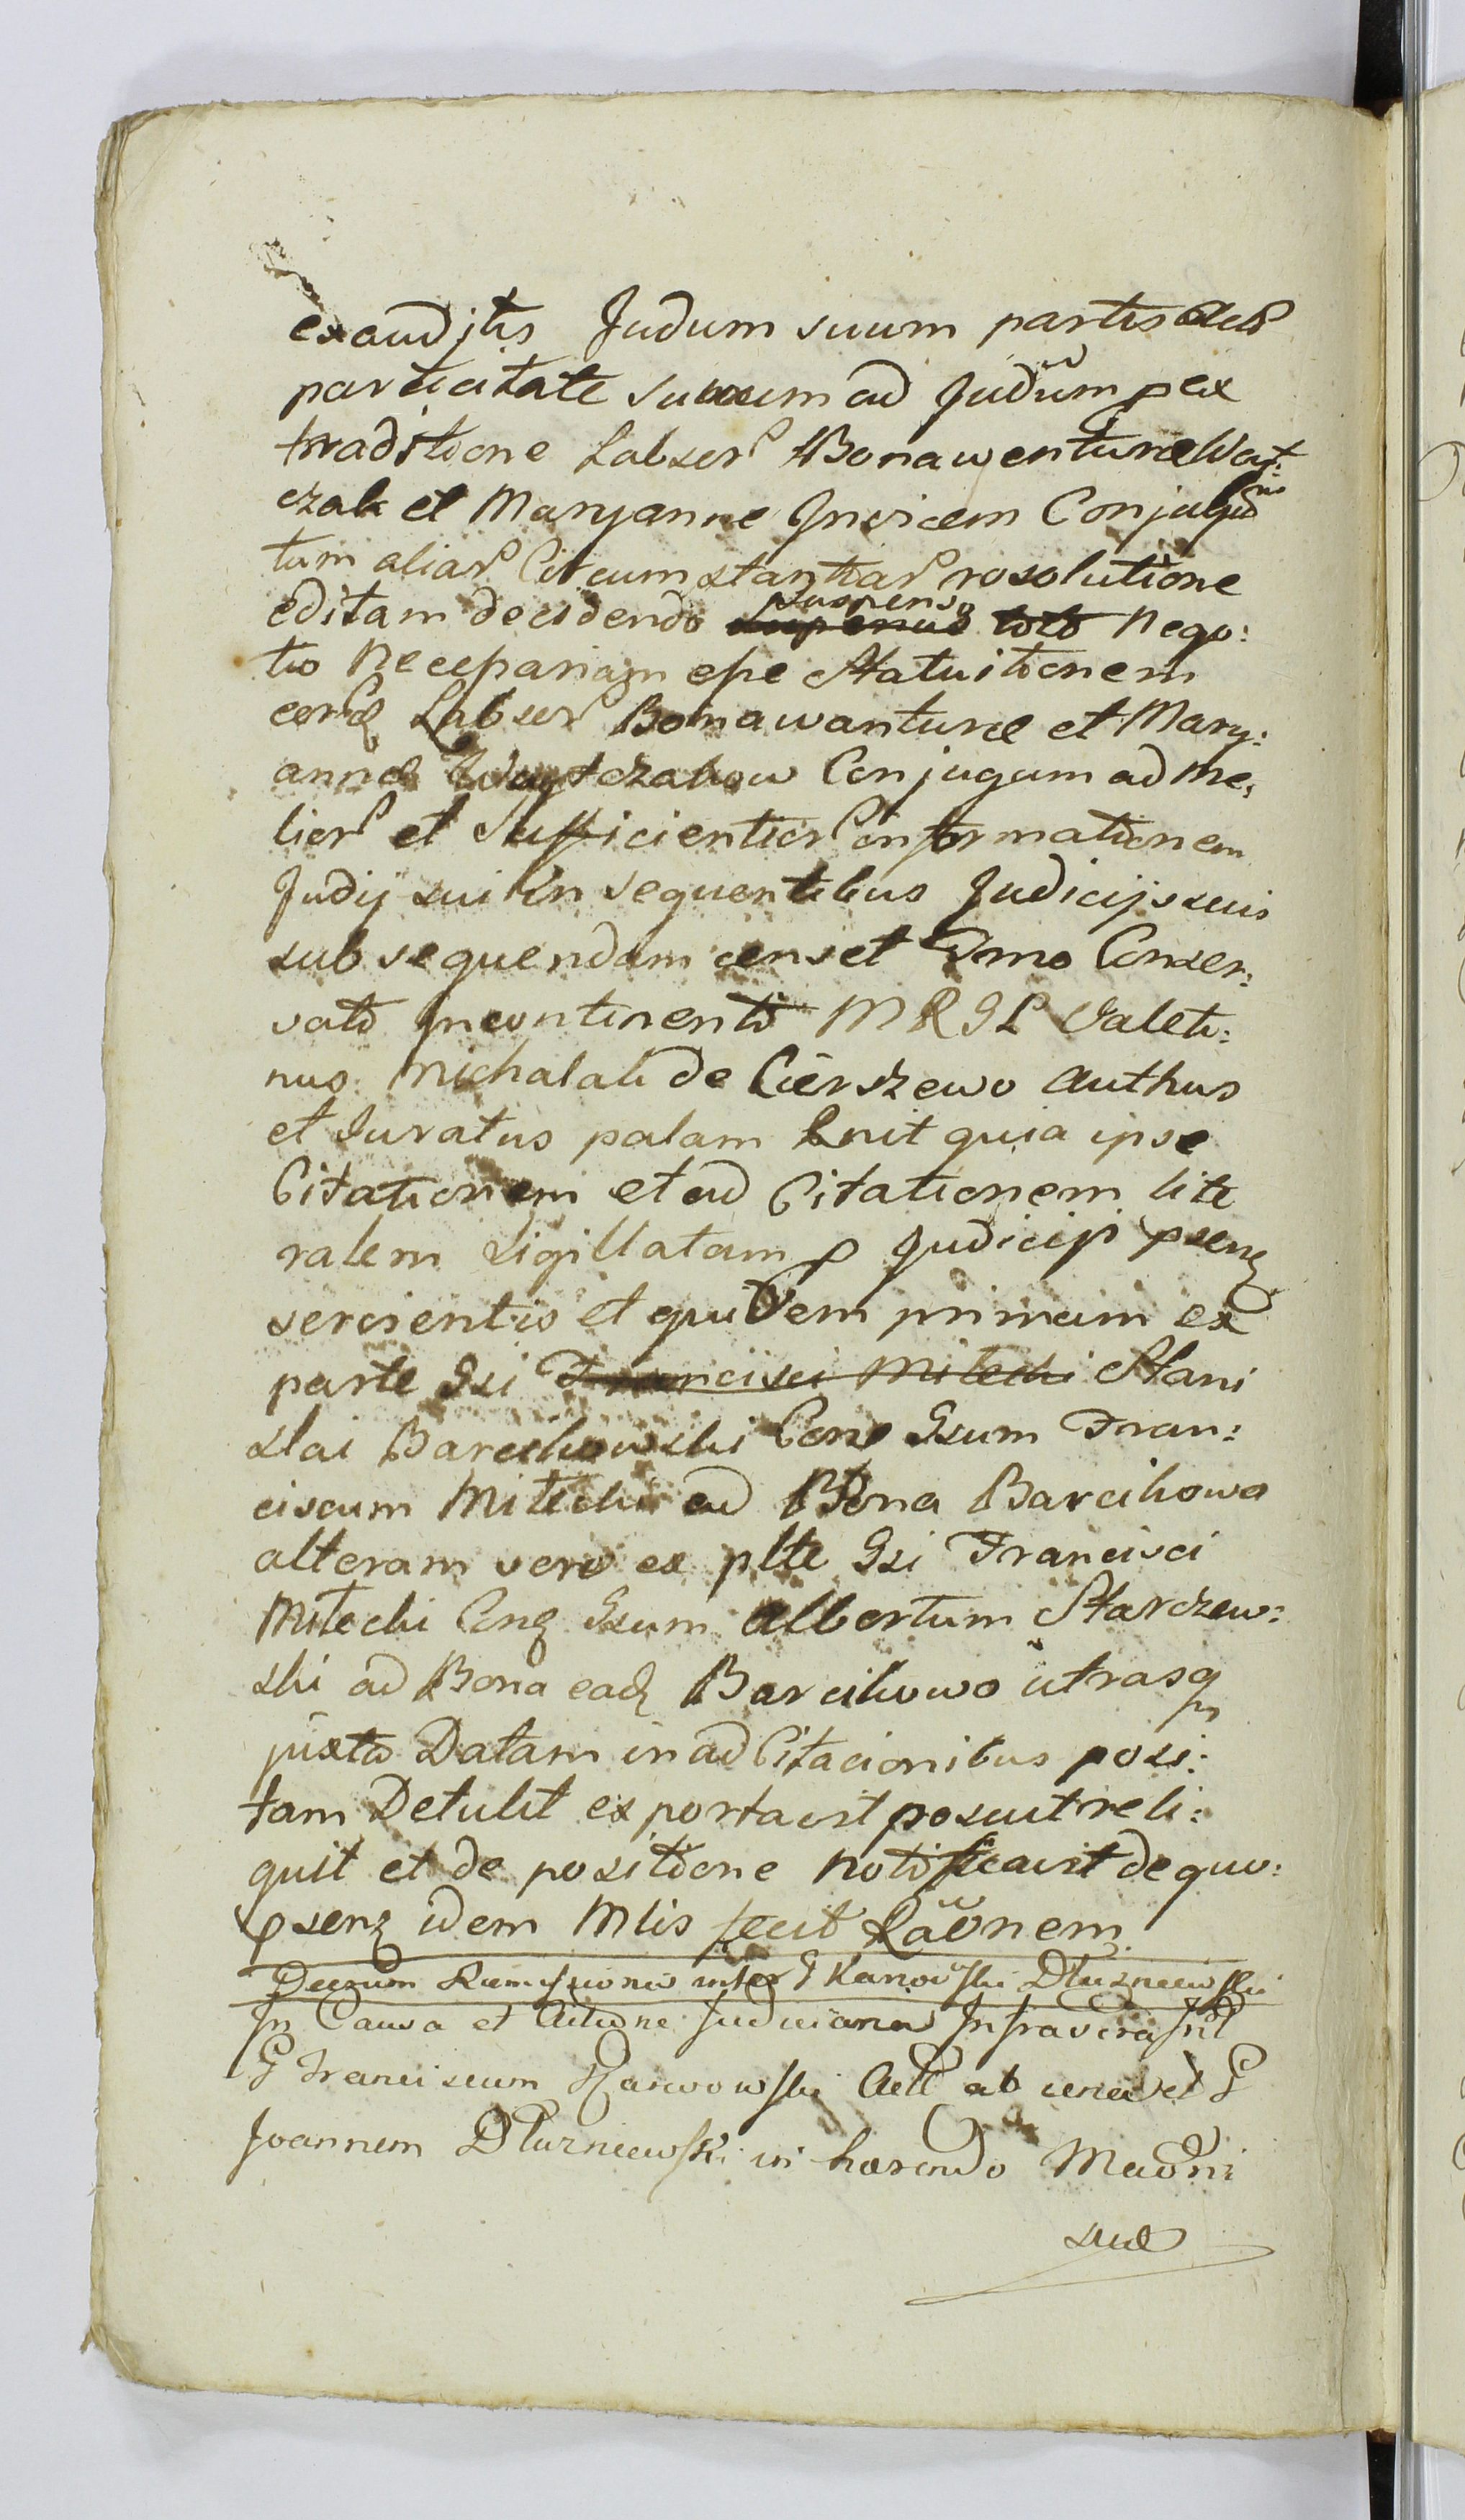 exauditis Judum suum partis
particitate suarum ad Judūm p ex
traditione Labser Bonawenturæ Woy:
czak et Maryanne Invicem Conjugū no
tum aliar Circumstantiar rosolutione
editam decidendo suspenso toto Nego:
tio Necessariam esse Statuitionem
eorq Labser Bonawanturæ et Mary:
annæ Woytczakow Conjugum ad me,
lior et Sufficientior informationem
Judij sui in sequentibus Judicijs suis
subsequendam censet Dmo Conser:
vato Incontinenti MRGL Valeti:
nus Michalak de Cierszewo Authus
et Juratus palam Rnit quia ipse
Citationem et ad Citationem lite
ralem Sigillatam p Judicij psenz
servientis et quidem primam ex
parte Gsi Francisci Miłecki Stani
slai Barcikowski Cone Gsum Fran:
ciscum Miłecki ad Bona Barcikowo
alteram vero ex plte Gsi Francisci
Miłecki Cong Gsum Albertum Starczew:
ski ad Bona eadz Barcikowo utrasq
juxta Datam in ad Citacionibus posi:
tam Detulit exportavit posuit reli:
quit et de positione notificavit de quo:
psenz idem Mlis fecit Rāōnem
Decrum Remissionis inter G Karwowski Dłużniewski
In Causa et Actione Judiciaria Infrascra Inr
G Franciscum Karwowski Act ab una et G
Joannem Dłużniewski in hærendo Madni
suæ